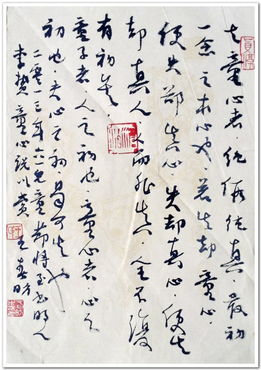 夫童心者·绝假纯真·最初
一念之本心也·若失却童心·
便失却真心·失却真心·便失
却真人·人而非真·全不复
有初矣·
童子者·人之初也·童心者·心之
初也·夫心之初·曷可失也
二零一三年六一儿童节将至书明人
李贽童心说以赏